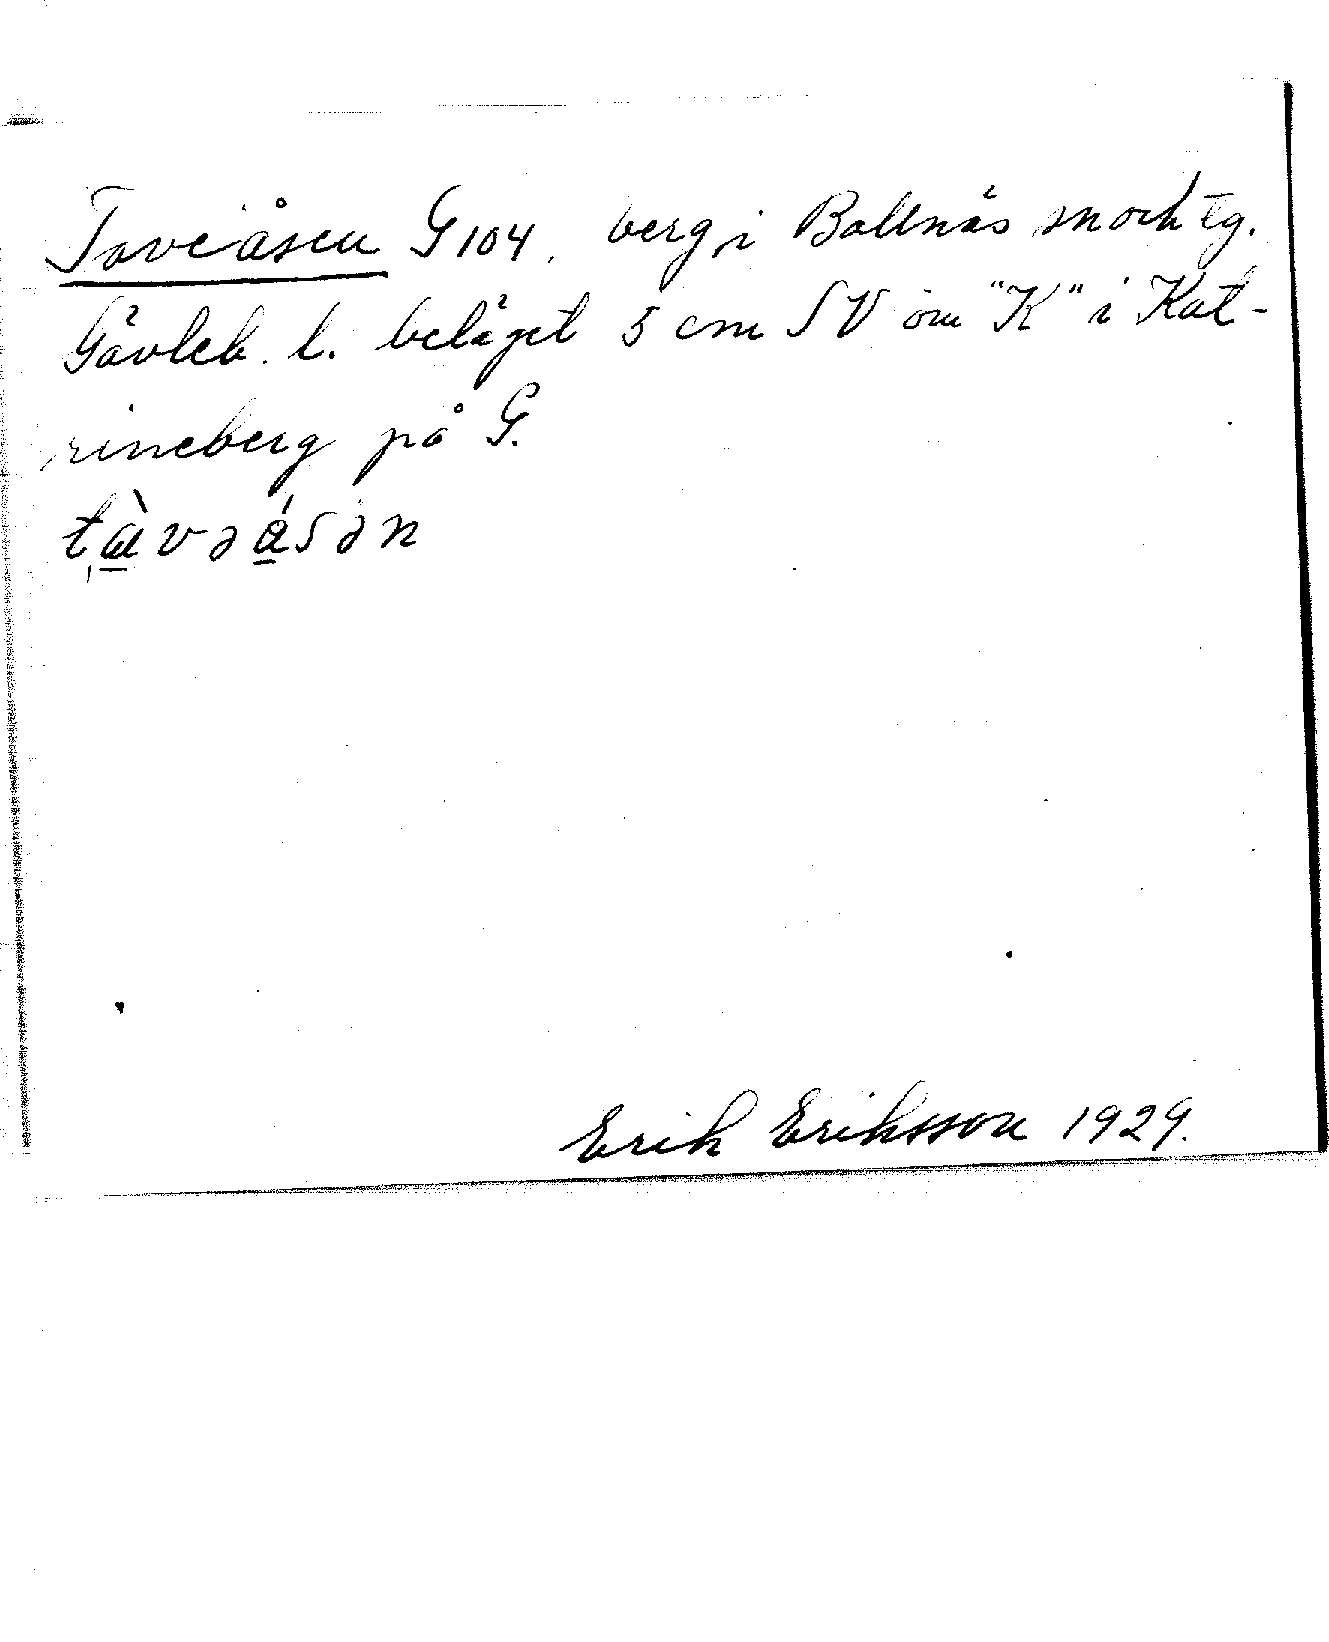 Taveåsen G 104. berg i Bollnäs sn och tg.
Gävleb. l. beläget 5 cm SV om "K" i Kat-
rineberg på G.
tàvəåsən
Erik Eriksson 1929.